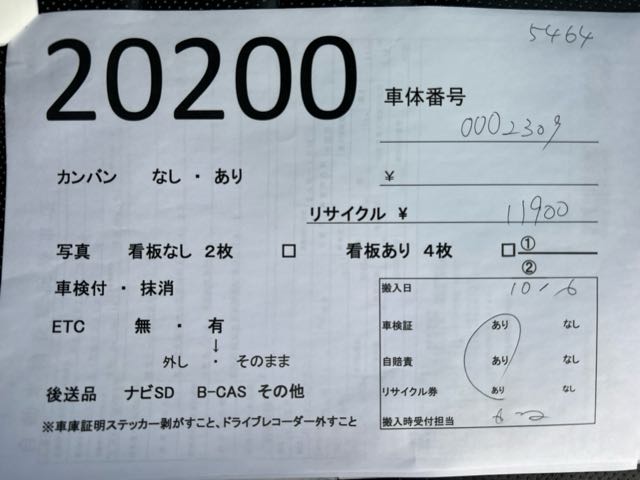 5464
20200
車体番号
0002309
カンバン なし ・ あり
¥
リサイクル ¥ 11900
写真 看板なし 2枚 □ 看板あり 4枚 □ ①
②
車検付 ・ 抹消
搬入日 10/6
ETC 無 ・ 有
車検証 あり なし
↓
外し ・ そのまま
自賠責 あり なし
後送品 ナビSD B-CAS その他
リサイクル券 あり なし
※車庫証明ステッカー剥がすこと、ドライブレコーダー外すこと
搬入時受付担当